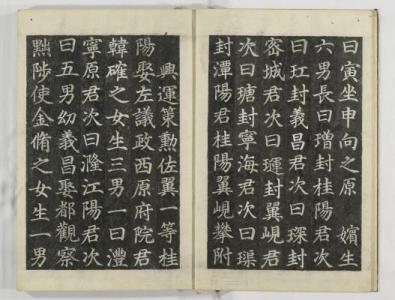 曰寅坐申向之原　嬪生
六男長曰增封桂陽君次
曰玒封義昌君次曰琛封
密城君次曰璭封翼峴君
次曰瑭封寧海君次曰璖
封潭陽君桂陽翼峴攀附
興運策勲佐翼一等桂
陽娶左議政西原府院君
韓確之女生三男一曰灃
寧原君次曰漋江陽君次
曰五男幼義昌聚都觀察
黜陟使金脩之女生一男